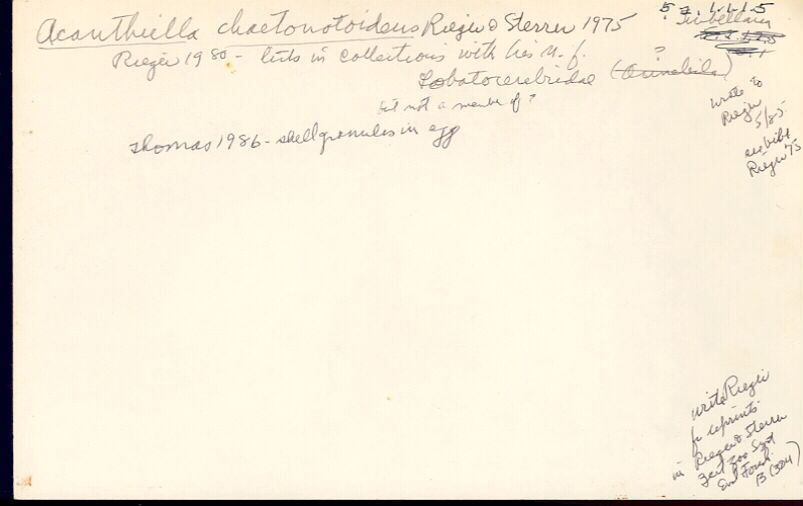 Acanthiella chaetonotoideus Rieger & Sterrer 1975
5 2.1.1.1.5
? Turbellaria
Rieger 1980 - lists in collections with his n. f.
Lobatocerebridae (Annelida)
?
but not a member of?
wrote to
Rieger
5/85
see bibl
Rieger 75
Thomas 1986 - shell granules in egg
write Rieger
for reprints
in Rieger & Sterrer
Zeit Zoo Syst
Evol Forsch.
13 (3&4)